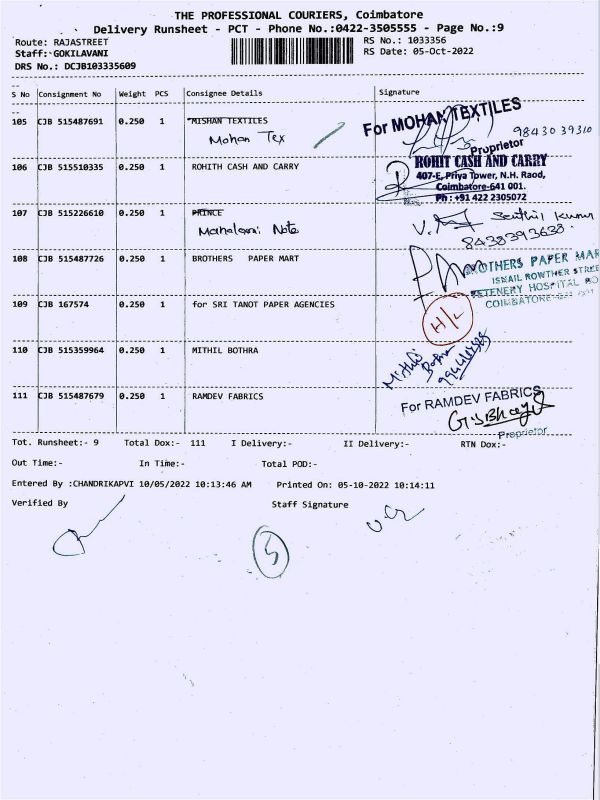 THE PROFESSIONAL COURIERS, Coimbatore
Delivery Runsheet - PCT - Phone No.:0422-3505555 - Page No.:9
Route: RAJASTREET
RS No.: 1033356
Staff: GOKILAVANI
RS Date: 05-Oct-2022
DRS No.: DCJB103335609
S No Consignment No Weight PCS Consignee Details Signature
105 CJB 515487691 0.250 1 MISHAN TEXTILES
Mohan Tex
For MOHAN TEXTILES
98430 39310
Proprietor
106 CJB 515510335 0.250 1 ROHITH CASH AND CARRY
ROHIT CASH AND CARRY
407-E, Priya Tower, N.H. Raod,
Coimbatore-641 001.
Ph : +91 422 2305072
107 CJB 515226610 0.250 1 PRINCE
Mahalaxmi Note
Senthil Kumar
8438393638.
108 CJB 515487726 0.250 1 BROTHERS PAPER MART
BROTHERS PAPER MAR
ISMAIL ROWTHER STREE
VETENERY HOSPITAL RO
COIMBATORE
109 CJB 167574 for SRI TANOT PAPER AGENCIES
0.250 1
H/L
110 CJB 515359964 0.250 1 MITHIL BOTHRA
Mithil
Bothra
111 CJB 515487679 0.250 1 RAMDEV FABRICS
For RAMDEV FABRICS
Proprietor
Tot. Runsheet:- 9 Total Dox:- 111 I Delivery:- II Delivery:- RTN Dox:-
Out Time:- In Time:- Total POD:-
Entered By :CHANDRIKAPVI 10/05/2022 10:13:46 AM Printed On: 05-10-2022 10:14:11
Verified By Staff Signature
5